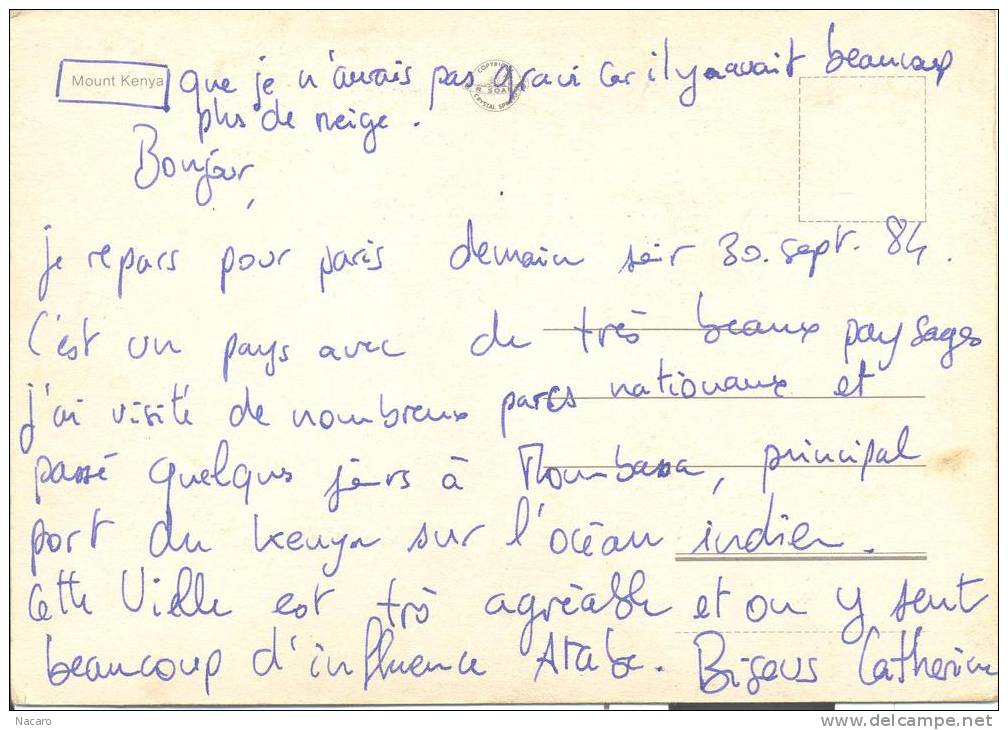 Mount Kenya que je n'avais pas gravi car il y avait beaucoup
COPYRIGHT
plus de neige.
Bonjour,
je repars pour paris demain soir 30. sept. 84.
C'est un pays avec de très beaux paysages
j'ai visité de nombreux parcs nationaux et
passé quelques jours à Mombassa, principal
port du Kenya sur l'océan indien.
Cette Vielle est très agréable et on y sent
beaucoup d'influence Arabe. Bisous Catherine
Nacaro
www.delcampe.net